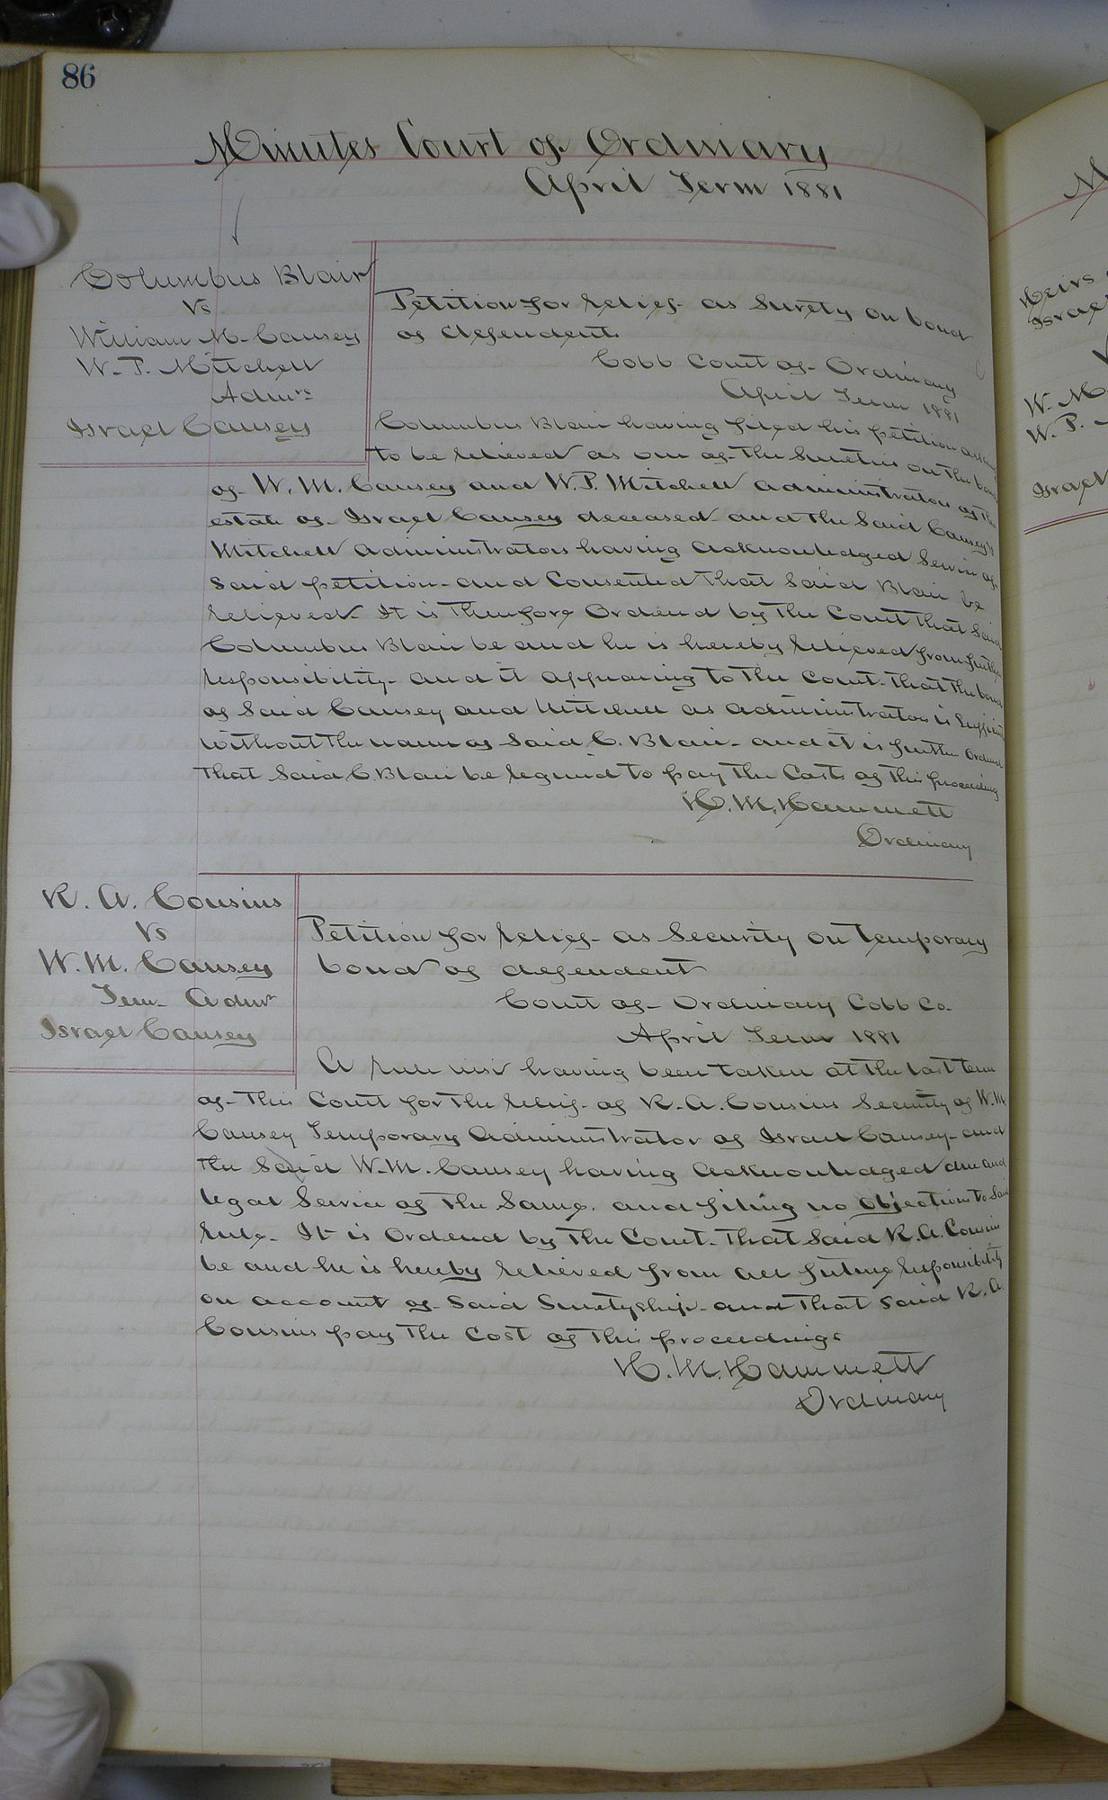 86
Minutes Court of Ordinary
April Term 1881
Columbus Blair
vs
William M. Causey
W. P. Mitchell
Admrs
Israel Causey
Petition for relief as Surety on bond
of defendent.
Cobb Court of Ordinary
April Term 1881
Columbus Blair having filed his petition asking
to be relieved as one of the Sureties on the bond
of W. M. Causey and W. P. Mitchell administrators of the
estate of Israel Causey deceased and the said Causey &
Mitchell administrators having acknowledged Service of
said petition and Consented that said Blair be
relieved. It is Therefore Ordered by the Court that said
Columbus Blair be and he is hereby relieved from further
responsibility and it appearing to the Court that the bond
of said Causey and Mitchell as administrators is Sufficient
without the name of said C. Blair and it is further Ordered
that said C. Blair be required to pay the Costs of this proceeding
H. M. Hammett
Ordinary
R. A. Cousins
vs
W. M. Causey
Tem. Admr
Israel Causey
Petition for relief as Security on temporary
bond of defendent
Court of Ordinary Cobb Co.
April Term 1881
A rule nisi having been taken at the last term
of this Court for the relief of R. A. Cousins Security of W. M.
Causey Temporary Administrator of Israel Causey and
the said W. M. Causey having acknowledged due and
legal Service of the Same. and filing no Objections to said
rule. It is Ordered by the Court that said R. A. Cousins
be and he is hereby relieved from all future responsibility
on account of said Suretyship and that said R. A
Cousins pay the Cost of this proceedings
H. M. Hammett
Ordinary
M
Heirs
Israel
W. M
W. P.
Israel